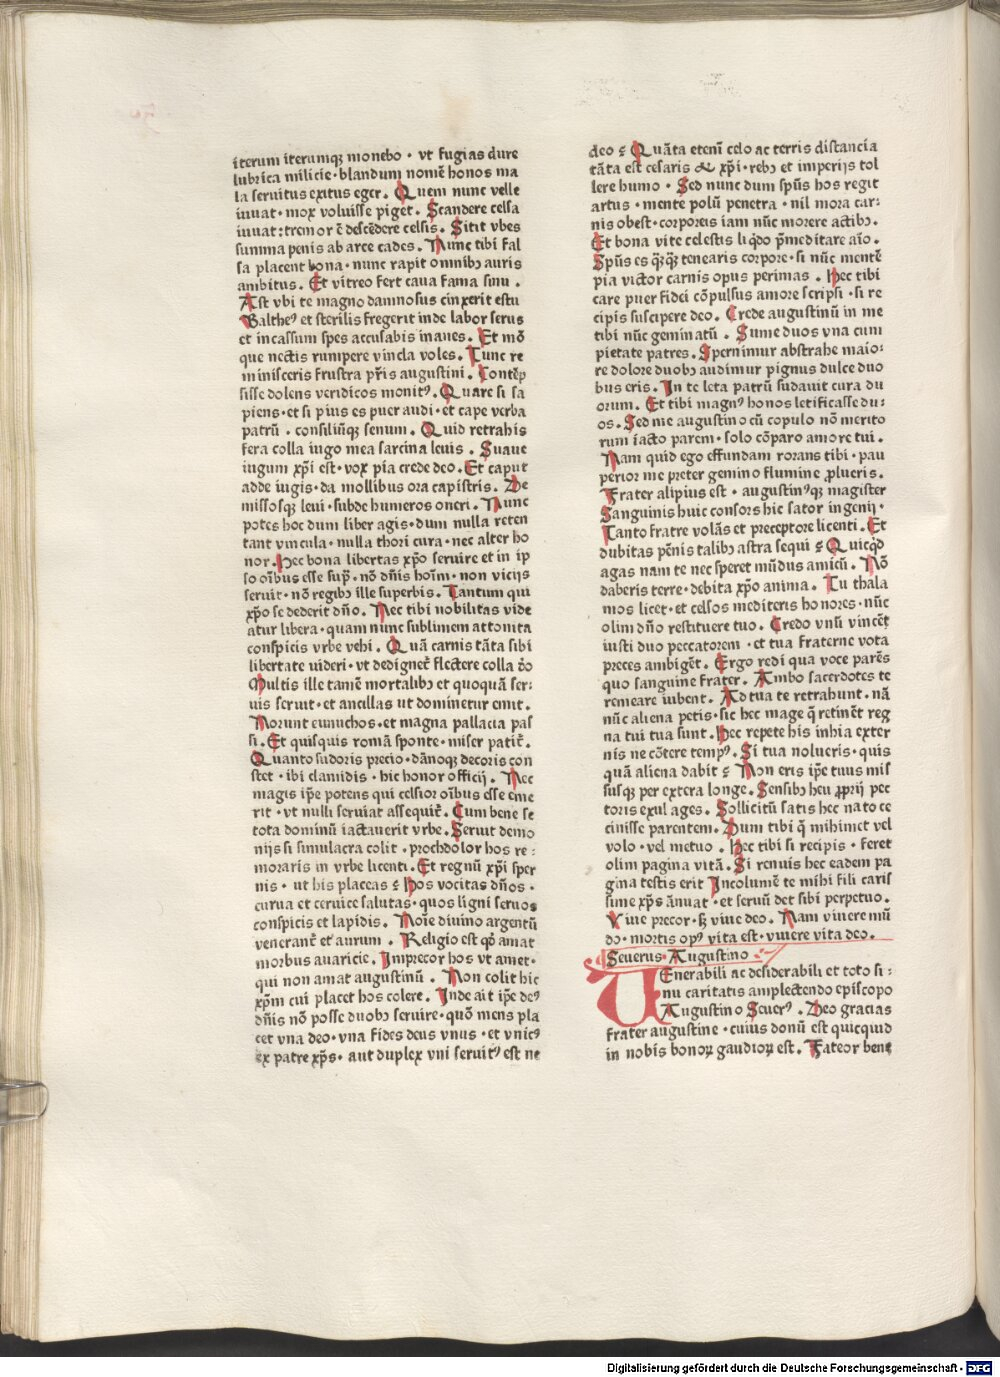 iterum iterumqꝫ monebo · vt fugias dure
lubrica milicie · blandum nomē honos ma
la seruitus exitus eger. Quem nunc velle
iuuat · mox voluisse piget. Scandere celsa
iuuat : tremor ē descēdere celsis. Sitit vbes
summa penis ab arce cades. Nunc tibi fal
sa placent bona · nunc rapit omnibꝫ auris
ambitus. Et vitreo fert caua fama sinu .
Ast vbi te magno damnosus cinxerit estu
Baltheꝰ et sterilis fregerit inde labor serus
et incassum spes accusabis inanes. Et mō
que nectis rumpere vincla voles. Tunc re
minisceris frustra pr̄is augustini. Contēp
sisse dolens veridicos monitꝰ. Quare si sa
piens · et si pius es puer audi · et cape verba
patrū . consiliūqꝫ senum. Quid retrahis
fera colla iugo mea sarcina leuis . Suaue
iugum xp̄i est · vox pia crede deo. Et caput
adde iugis · da mollibus ora capistris. De
missosqꝫ leui · subde humeros oneri. Nunc
potes hoc dum liber agis · dum nulla reten
tant vincula · nulla thori cura · nec alter ho
nor. Hec bona libertas xp̄o seruire et in ip
so oībus esse supꝰ · nō dn̄is hoīm · non vicijs
seruit · nō regibꝫ ille superbis. Tantum qui
xp̄o se dederit dn̄o. Nec tibi nobilitas vide
atur libera · quam nunc sublimem attonita
conspicis vrbe vehi. Quā carnis tāta sibi
libertate uideri · vt dedignet̄ flectere colla d̄o
Multis ille tamē mortalibꝫ et quoquā ser:
uis seruit · et ancillas ut dominetur emit.
Norunt eunuchos · et magna pallacia pas
si. Et quisquis romā sponte · miser patit̄.
Quanto sudoris precio · dānoqꝫ decoris con
stet · ibi clamidis · hic honor officij . Nec
magis ip̄e potens qui celsior oībus esse eme
rit · vt nulli seruiat assequit̄. Cum bene se
tota dominū iactauerit vrbe. Seruit demo
nijs si simulacra colit · prochdolor hos re :
moraris in vrbe licenti. Et regnū xp̄i sper
nis · ut his placeas ⁊ Hos vocitas dn̄os ·
curua et ceruice salutas · quos ligni seruos
conspicis et lapidis. Noīe diuino argentū
venerant̄ et aurum . Religio est qd̄ amat
morbus auaricie. Imprecor hos vt amet ·
qui non amat augustinū . Non colit hic
xp̄m cui placet hos colere. Inde ait ip̄e deꝰ
dn̄is nō posse duobꝫ seruire · quō mens pla
cet vna deo · vna fides deus vnus · et vnicꝰ
ex patre xp̄s · aut duplex vni seruitꝰ est ne
deo ⁊ Quāta etenī celo ac terris distancia
tāta est cesaris & xp̄i · rebꝫ et imperijs tol
lere humo · Sed nunc dum spūs hos regit
artus · mente polū penetra · nil mora car:
nis obest · corporeis iam nūc morere actibꝫ.
Et bona vite celestis liqdo p̄meditare aīo.
Spūs es qꝫqꝫ tenearis corpore · si nūc mentē
pia victor carnis opus perimas . Hec tibi
care puer fidei cōpulsus amore scripsi · si re
cipis suscipere deo. Crede augustinū in me
tibi nūc geminatū . Sume duos vna cum
pietate patres. Spernimur abstrahe maio:
re dolore duobꝫ audimur pignus dulce duo
bus eris. In te leta patrū sudauit cura du
orum. Et tibi magnꝰ honos letificasse du:
os. Sed me augustino cū copulo nō merito
rum iacto parem · solo cōparo amore tui.
Nam quid ego effundam rorans tibi · pau
perior me preter gemino flumine ꝓlueris.
Frater alipius est · augustinꝰqꝫ magister
Sanguinis huic consors hic sator ingenij .
Tanto fratre volās et preceptore licenti. Et
dubitas pēnis talibꝫ astra sequi ⁊ Quicqd
agas nam te nec speret mūdus amicū. Nō
daberis terre · debita xp̄o anima. Tu thala
mos licet · et celsos mediteris honores · nūc
olim dn̄o restituere tuo. Credo vnū vincēt
iusti duo peccatorem · et tua fraterne vota
preces ambigēt. Ergo redi qua voce parēs
quo sanguine frater. Ambo sacerdotes te
remeare iubent. Ad tua te retrahunt · nā
nūc aliena petis · sic hec mage q̄ retinēt reg
na tui tua sunt. Hec repete his inhia exter
nis ne cōtere tempꝰ. Si tua nolueris · quis
quā aliena dabit ⁊ Non eris ip̄e tuus mis
susqꝫ per extera longe. Sensibꝫ heu ꝓprij pec
toris exul ages. Sollicitū satis hec nato ce
cinisse parentem. Dum tibi q̄ mihimet vel
volo · vel metuo . Hec tibi si recipis · feret
olim pagina vitā. Si renuis hec eadem pa
gina testis erit Incolumē te mihi fili caris
sime xp̄s ānuat · et seruū det sibi perpetuo.
Viue precor · sꝫ viue deo. Nam viuere mū
do · mortis opꝰ vita est · viuere vita deo.
Seuerus Augustino
VEnerabili ac desiderabili et toto si:
nu caritatis amplectendo episcopo
Augustino Seuerꝰ . Deo gracias
frater augustine · cuius donū est quicquid
in nobis bonoꝝ gaudioꝝ est. Fateor bene
Digitalisierung gefördert durch die Deutsche Forschungsgemeinschaft - DFG